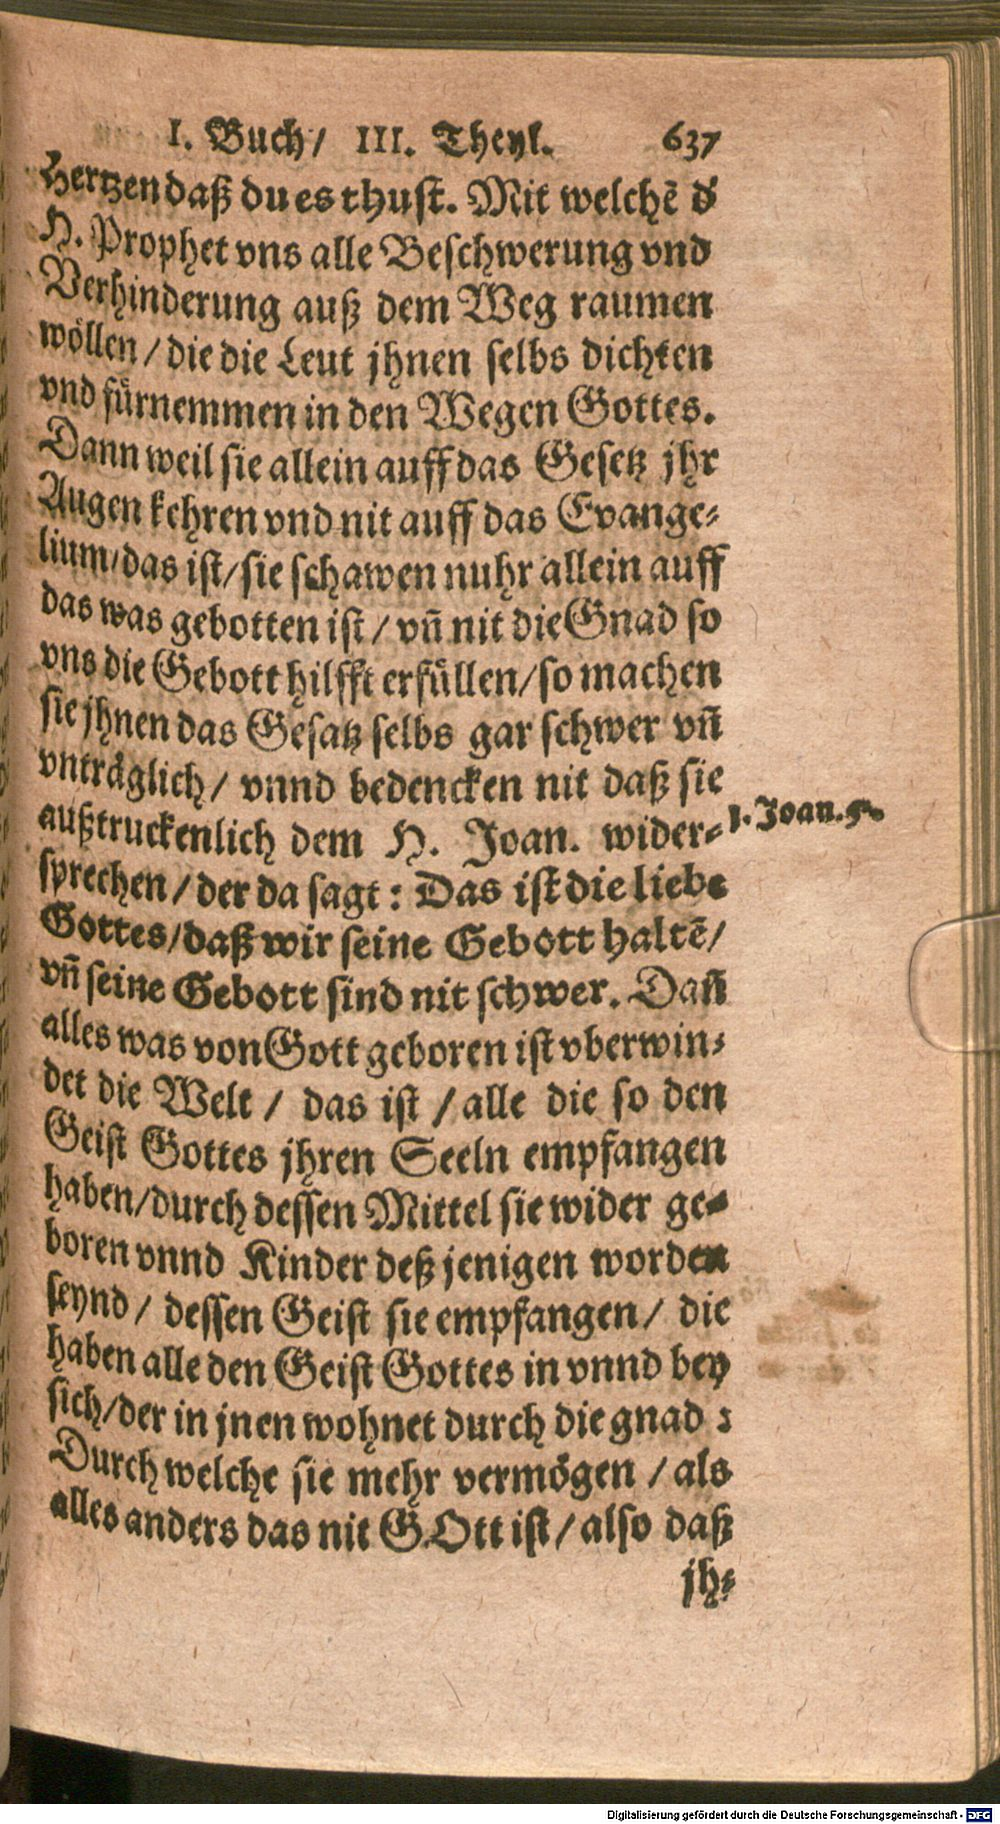 I. Buch/ III. Theyl. 637
Hertzen daß du es thust. Mit welchē d'
H. Prophet vns alle Beschwerung vnd
Verhinderung auß dem Weg raumen
wöllen / die die Leut jhnen selbs dichten
vnd fürnemmen in den Wegen Gottes.
Dann weil sie allein auff das Gesetz jhr
Augen kehren vnd nit auff das Evange-
lium/das ist/sie schawen nuhr allein auff
das was gebotten ist / vñ nit die Gnad so
vns die Gebott hilfft erfüllen/so machen
sie jhnen das Gesatz selbs gar schwer vñ
vnträglich / vnnd bedencken nit daß sie
außtruckenlich dem H. Joan. wider-
1. Joan. 5.
sprechen / der da sagt : Das ist die liebe
Gottes/daß wir seine Gebott haltē/
vñ seine Gebott sind nit schwer. Dañ
alles was von Gott geboren ist vberwin-
det die Welt / das ist / alle die so den
Geist Gottes jhren Seeln empfangen
haben/durch dessen Mittel sie wider ge-
boren vnnd Kinder deß jenigen worden
seynd / dessen Geist sie empfangen / die
haben alle den Geist Gottes in vnnd bey
sich/der in jnen wohnet durch die gnad :
Durch welche sie mehr vermögen / als
alles anders das nit GOtt ist / also daß
jh-
Digitalisierung gefördert durch die Deutsche Forschungsgemeinschaft - DFG